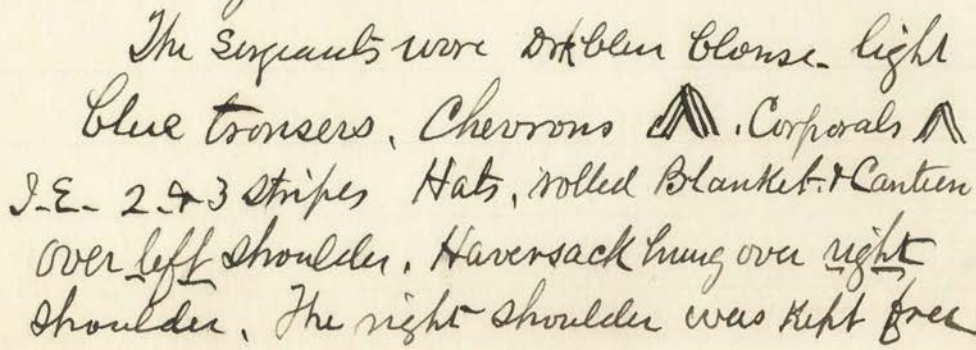 The Sergeants wore Drk bleu blouse - light
blue trousers, Chevrons . Corporals
I.E. - 2 & 3 stripes Hats, rolled Blanket & Canteen
over left shoulder. Haversack hung over right
shoulder. The right shoulder was kept free